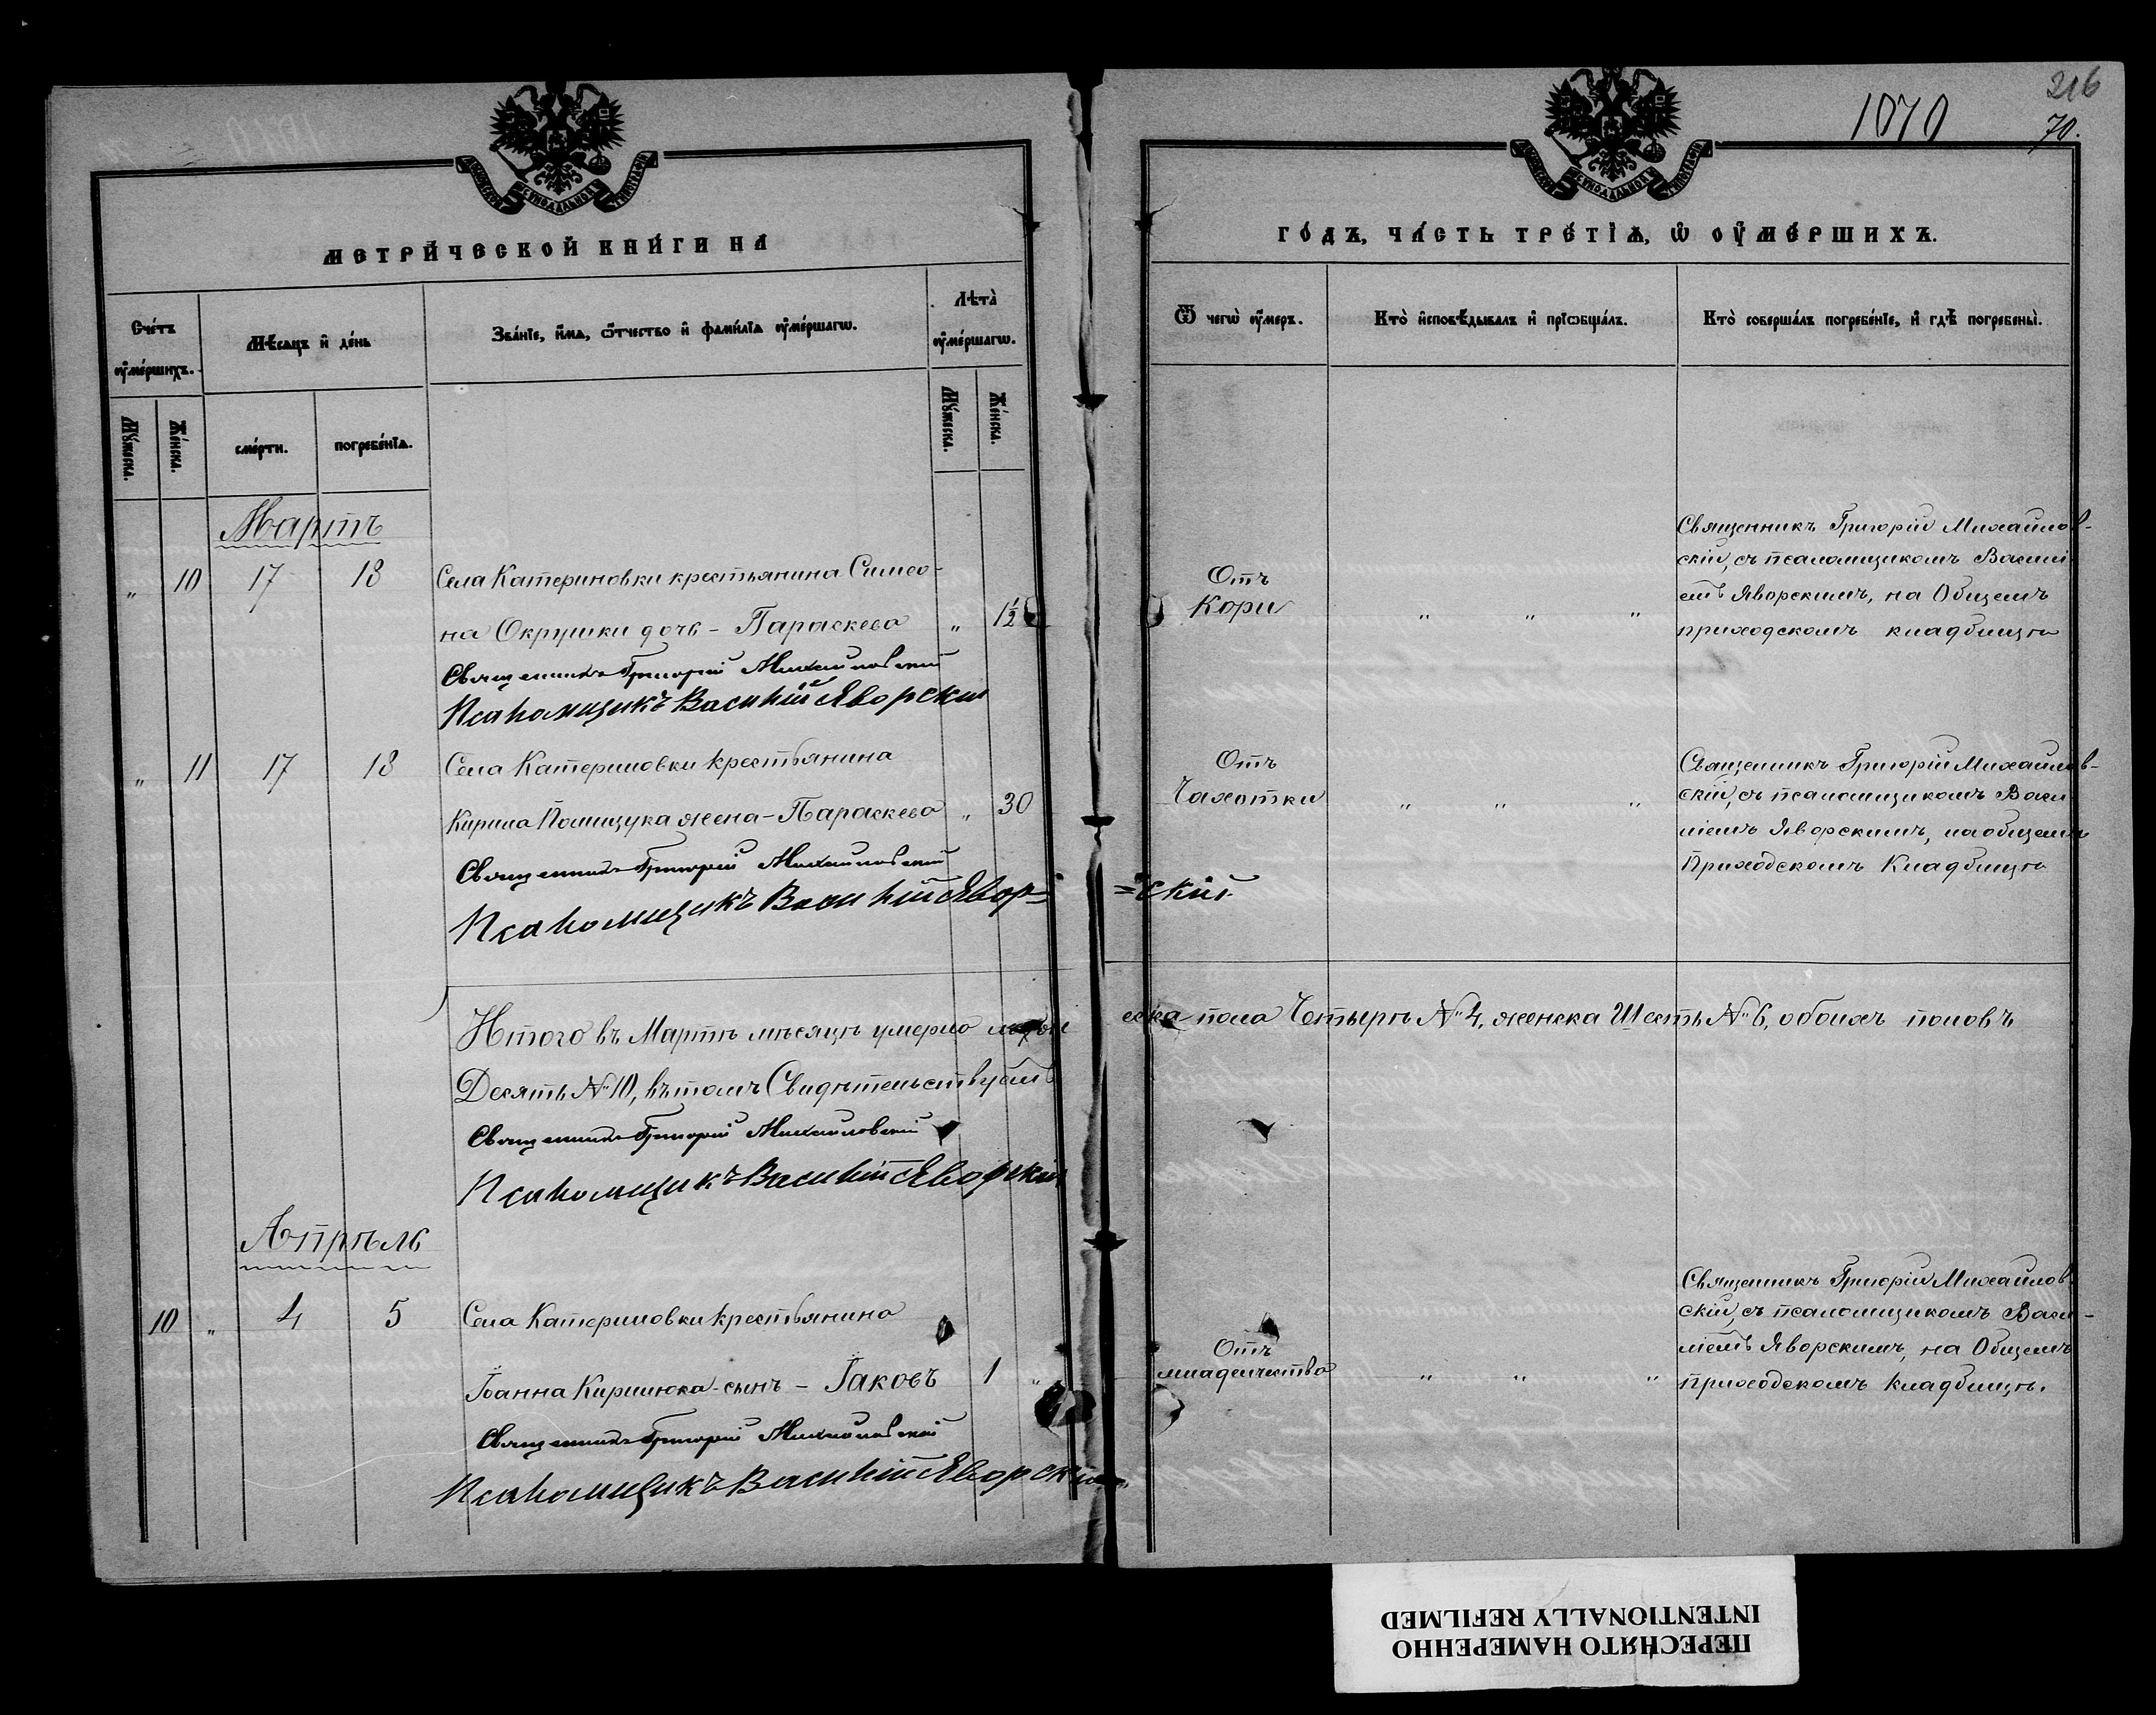 1070
216
70.
МЕТРИ́ЧЕСКОЙ КНИ́ГИ НА
ГО́ДЪ, ЧА́СТЬ ТРЕ́ТЇѦ, Ѡ҆ ОУ҆МЕ́РШИХЪ.
Сче́тъ оу҆ме́ршихъ.
Мѣ́сѧцъ и҆ де́нь
Зва́нїе, и҆́мѧ, ѻ҆́тчество и҆ фами́лїѧ оу҆ме́ршагѡ.
Лѣ́та оу҆ме́ршагѡ.
Ѿ чегѡ̀ оу҆́меръ.
Кто̀ и҆сповѣ́дывалъ и҆ прїѡбща́лъ.
Кто̀ соверша́лъ погребе́нїе, и҆ гдѣ̀ погребены̀.
Мꙋ́жеска.
Же́нска.
сме́рти.
погребе́нїѧ.
Мꙋ́жеска.
Же́нска.
Мартъ
„ 10 17 18 Села Катериновки крестьянина Симео-
на Окрушки дочь - Параскева „ 1½
Священникъ Григорій Михайловскій
Псаломщикъ Василій Яворскій
Отъ
Кори
„ „ „
Священникъ Григорій Михайлов-
скій, съ псаломщикомъ Василі
емъ Яворскимъ, на Общемъ
приходскомъ кладбищѣ
„ 11 17 18 Села Катериновки крестьянина
Кирила Полищука жена - Параскева „ 30
Священникъ Григорій Михайловскій
Псаломщикъ Василій Явор=
=скій.
Отъ
Чахотки
„ „ „
Священникъ Григорій Михайлов-
скій, съ псаломщикомъ Васи
ліемъ Яворскимъ, на общемъ
Приходскомъ Кладбищѣ
Итого въ Мартѣ мѣсяцѣ умерло
еска пола Четыре № 4, женска Шесть № 6, обоихъ половъ
Десять № 10, въ томъ Свидѣтельствуемъ
Священникъ Григорій Михайловскій
Псаломщикъ Василій Яворскій
Апрѣль
10 „ 4 5 Села Катериновки крестьянина
Іоанна Кирилюка - сынъ - Іаковъ 1 „
Священникъ Григорій Михайловскій
Псаломщикъ Василій Яворскій
Отъ
младенчества
„ „ „
Священникъ Григорій Михайлов
скій, съ псаломщикомъ Васи-
ліемъ Яворскимъ, на Общемъ
приходскомъ кладбищѣ.
ПЕРЕСНЯТО НАМЕРЕННО
INTENTIONALLY REFILMED